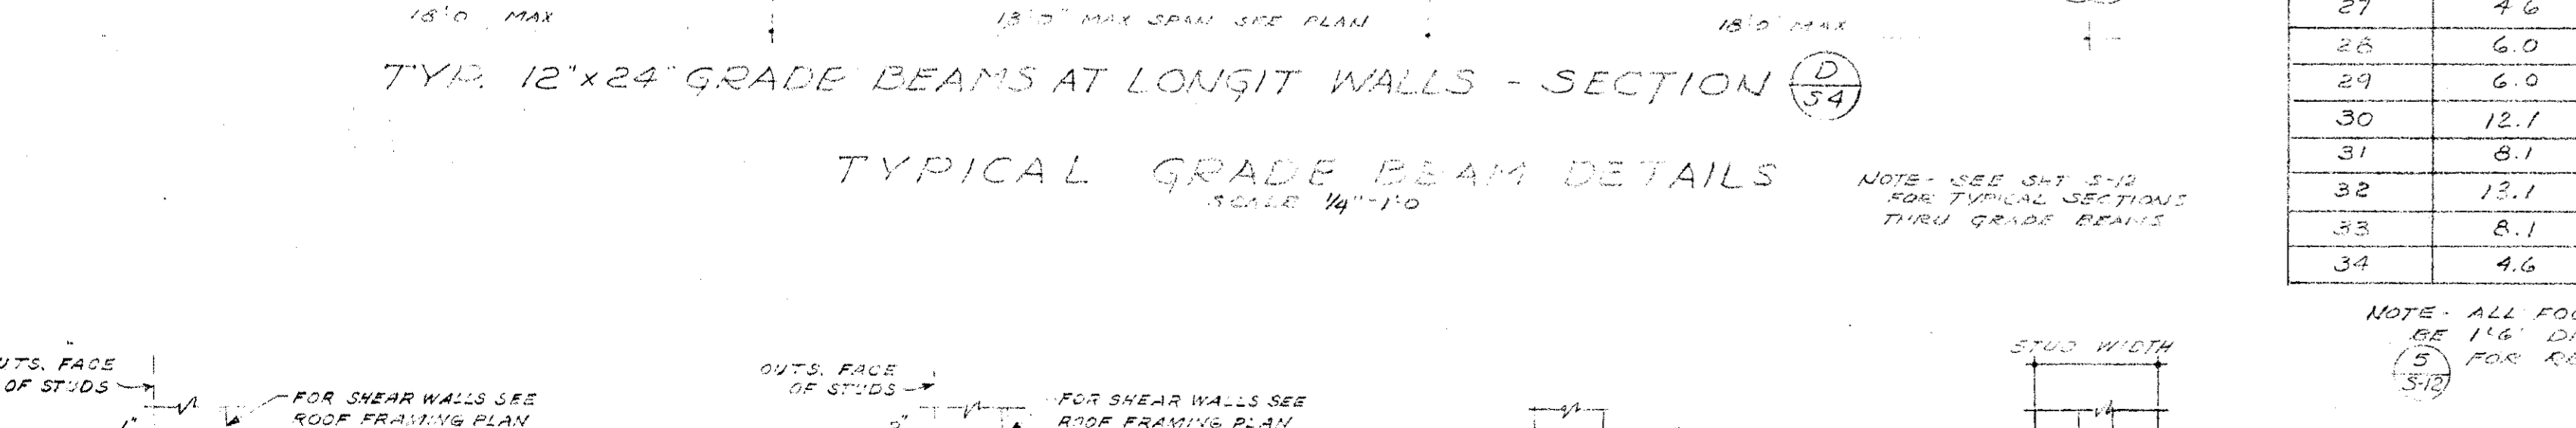 18'0 MAX
13'0" MAX SPAN SEE PLAN
18'0 MAX
TYP. 12"x24" GRADE BEAMS AT LONGIT WALLS - SECTION D S4
TYPICAL GRADE BEAM DETAILS
SCALE 1/4"-1'0
NOTE- SEE SHT S-12
FOR TYPICAL SECTIONS
THRU GRADE BEAMS
27 4.6
28 6.0
29 6.0
30 12.1
31 8.1
32 13.1
33 8.1
34 4.6
NOTE- ALL
BE 1'6"
5 S-12 FOR
FACE
OF STUDS
FOR SHEAR WALLS SEE
ROOF FRAMING PLAN
OUTS. FACE
OF STUDS
FOR SHEAR WALLS SEE
ROOF FRAMING PLAN
STUD WIDTH